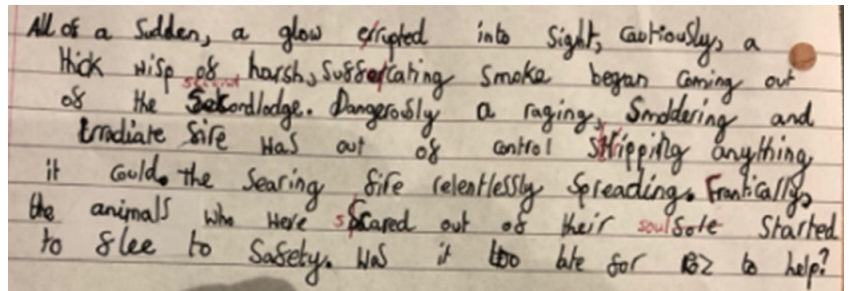 All of a Sudden, a glow errupted into Sight, Cautiously, a
thick wisp of harsh, Suffercating Smoke began Coming out
second
of the Secordlodge. Dangerously a raging, Smoldering and
Erradiate fire was out of control Stripping anything
it Could. the Searing fire relentlessly Spreading. Frantically,
the animals who were scared out of their soul Sole Started
to flee to Safety. Was it too late for Roz to help?